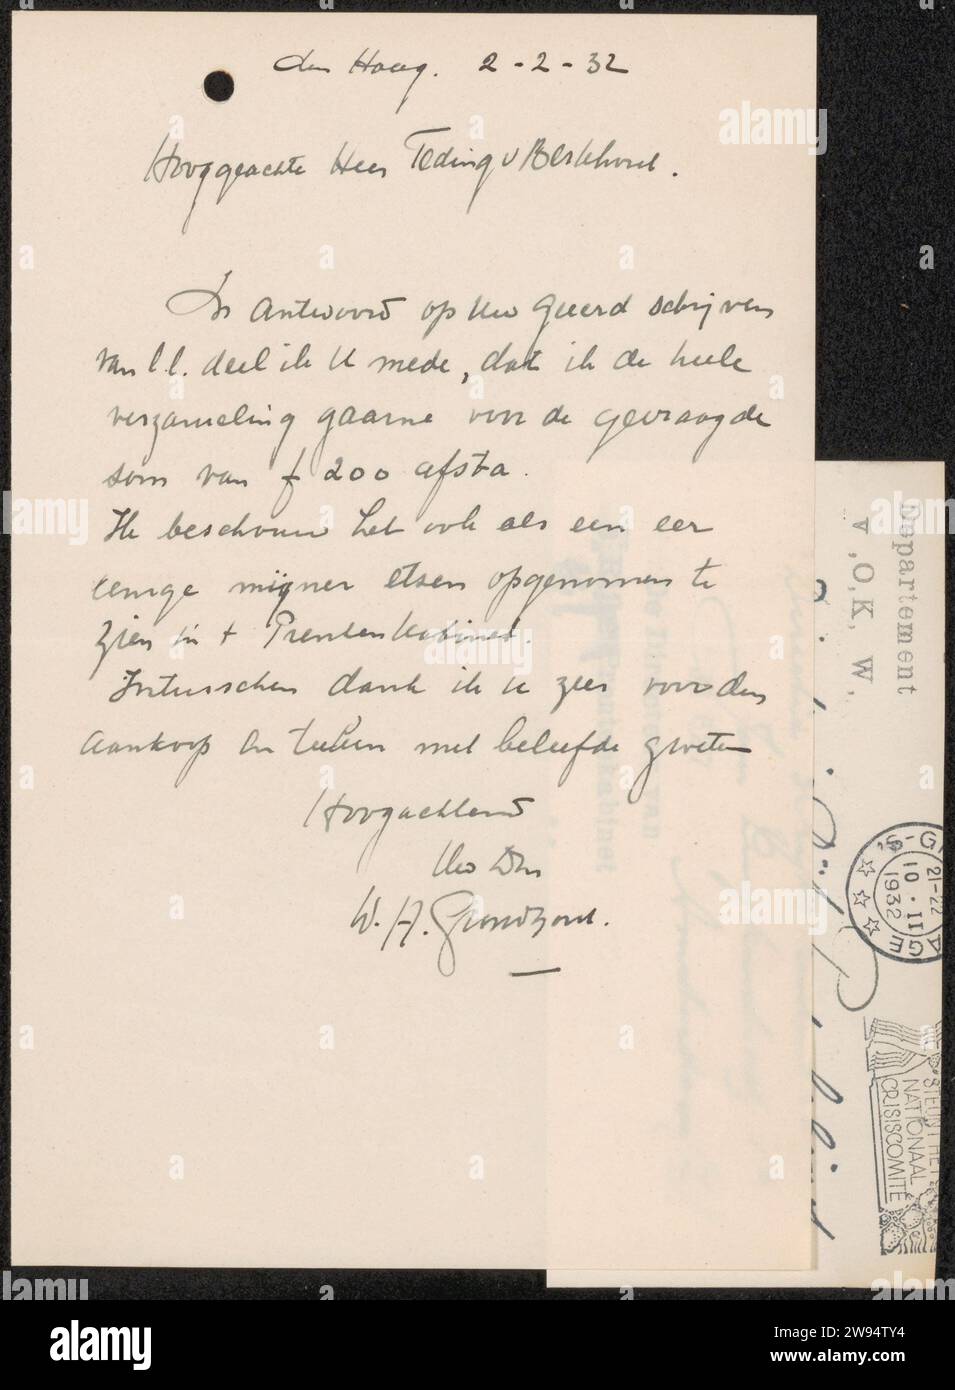 den Haag. 2-2-32
Hooggeachte Heer Teding v Berkhout.
In antwoord op Uw geeerd schrijven
van l.l. deel ik U mede, dat ik de heele
verzameling gaarne voor de gevraagde
som van f 200 afsta.
Ik beschouw het ook als een eer
eenige mijner etsen opgenomen te
zien in t Prentenkabinet.
Intusschen dank ik u zeer voor den
aankoop en teeken met beleefde groeten
Hoogachtend
Uw Dw
W. A. Grondhout.
Departement
v. O. K. W.
'S-G
AGE
21-22
10.II
1932
STEUNT HET
NATIONAAL
CRISISCOMITÉ
alamy
Image ID: 2W94TY4
www.alamy.com